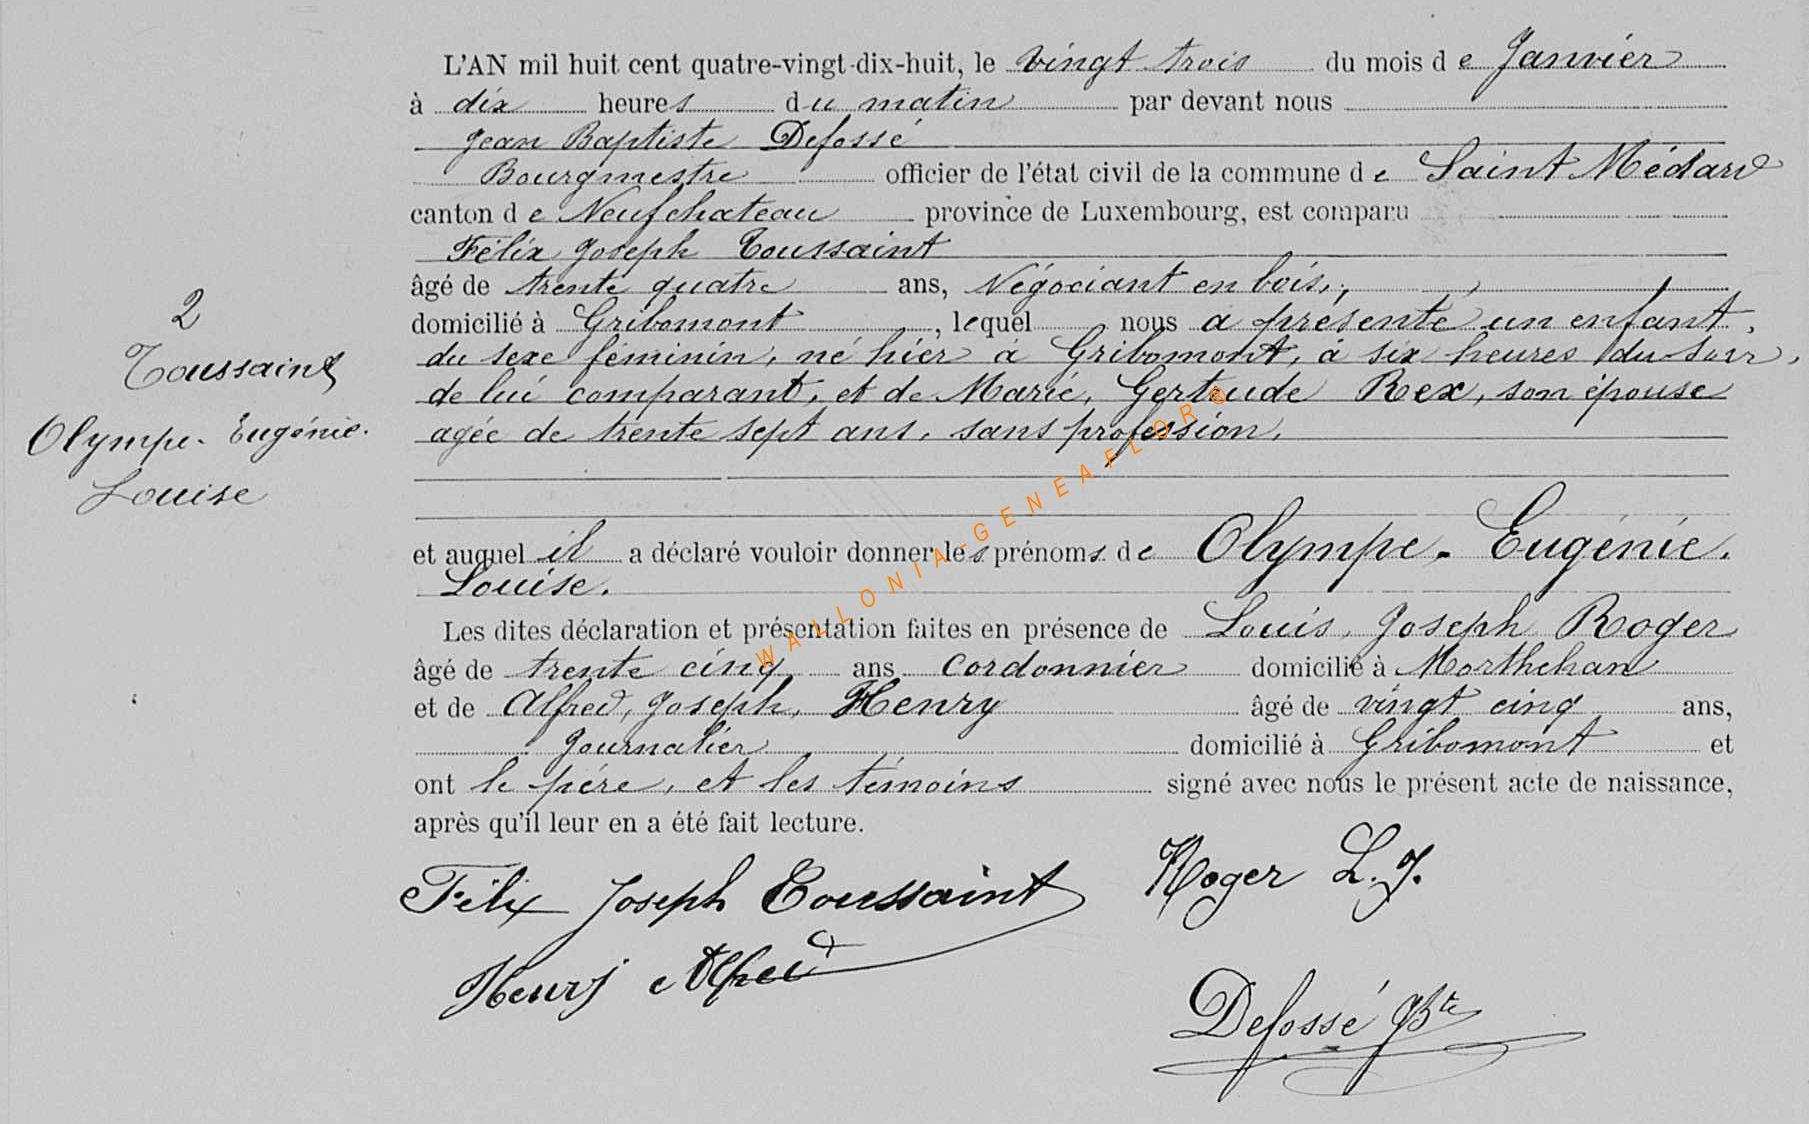 L'AN mil huit cent quatre-vingt-dix-huit, le vingt trois du mois de Janvier
à dix heures du matin par devant nous
Jean Baptiste Defossé
Bourgmestre officier de l'état civil de la commune de Saint Médard
canton de Neufchateau province de Luxembourg, est comparu
Félix Joseph Toussaint
âgé de trente quatre ans, Négociant en bois,
domicilié à Gribomont, lequel nous a présenté un enfant,
du sexe féminin, né hier à Gribomont, à six heures du soir,
de lui comparant, et de Marie, Gertrude Rex, son épouse
agée de trente sept ans, sans profession,
2
Toussaint
Olympe-Eugénie-
Louise
et auquel il a déclaré vouloir donner les prénoms de Olympe-Eugénie.
Louise.
Les dites déclaration et présentation faites en présence de Louis, Joseph Roger
âgé de trente cinq ans cordonnier domicilié à Morthehan
et de Alfred, Joseph, Henry âgé de vingt cinq ans,
Journalier domicilié à Gribomont et
ont le père, et les témoins signé avec nous le présent acte de naissance,
après qu'il leur en a été fait lecture.
Félix Joseph Toussaint
Roger L. J.
Henry Alfred
Defossé JBte
WALLONIA-GENEAFLORE